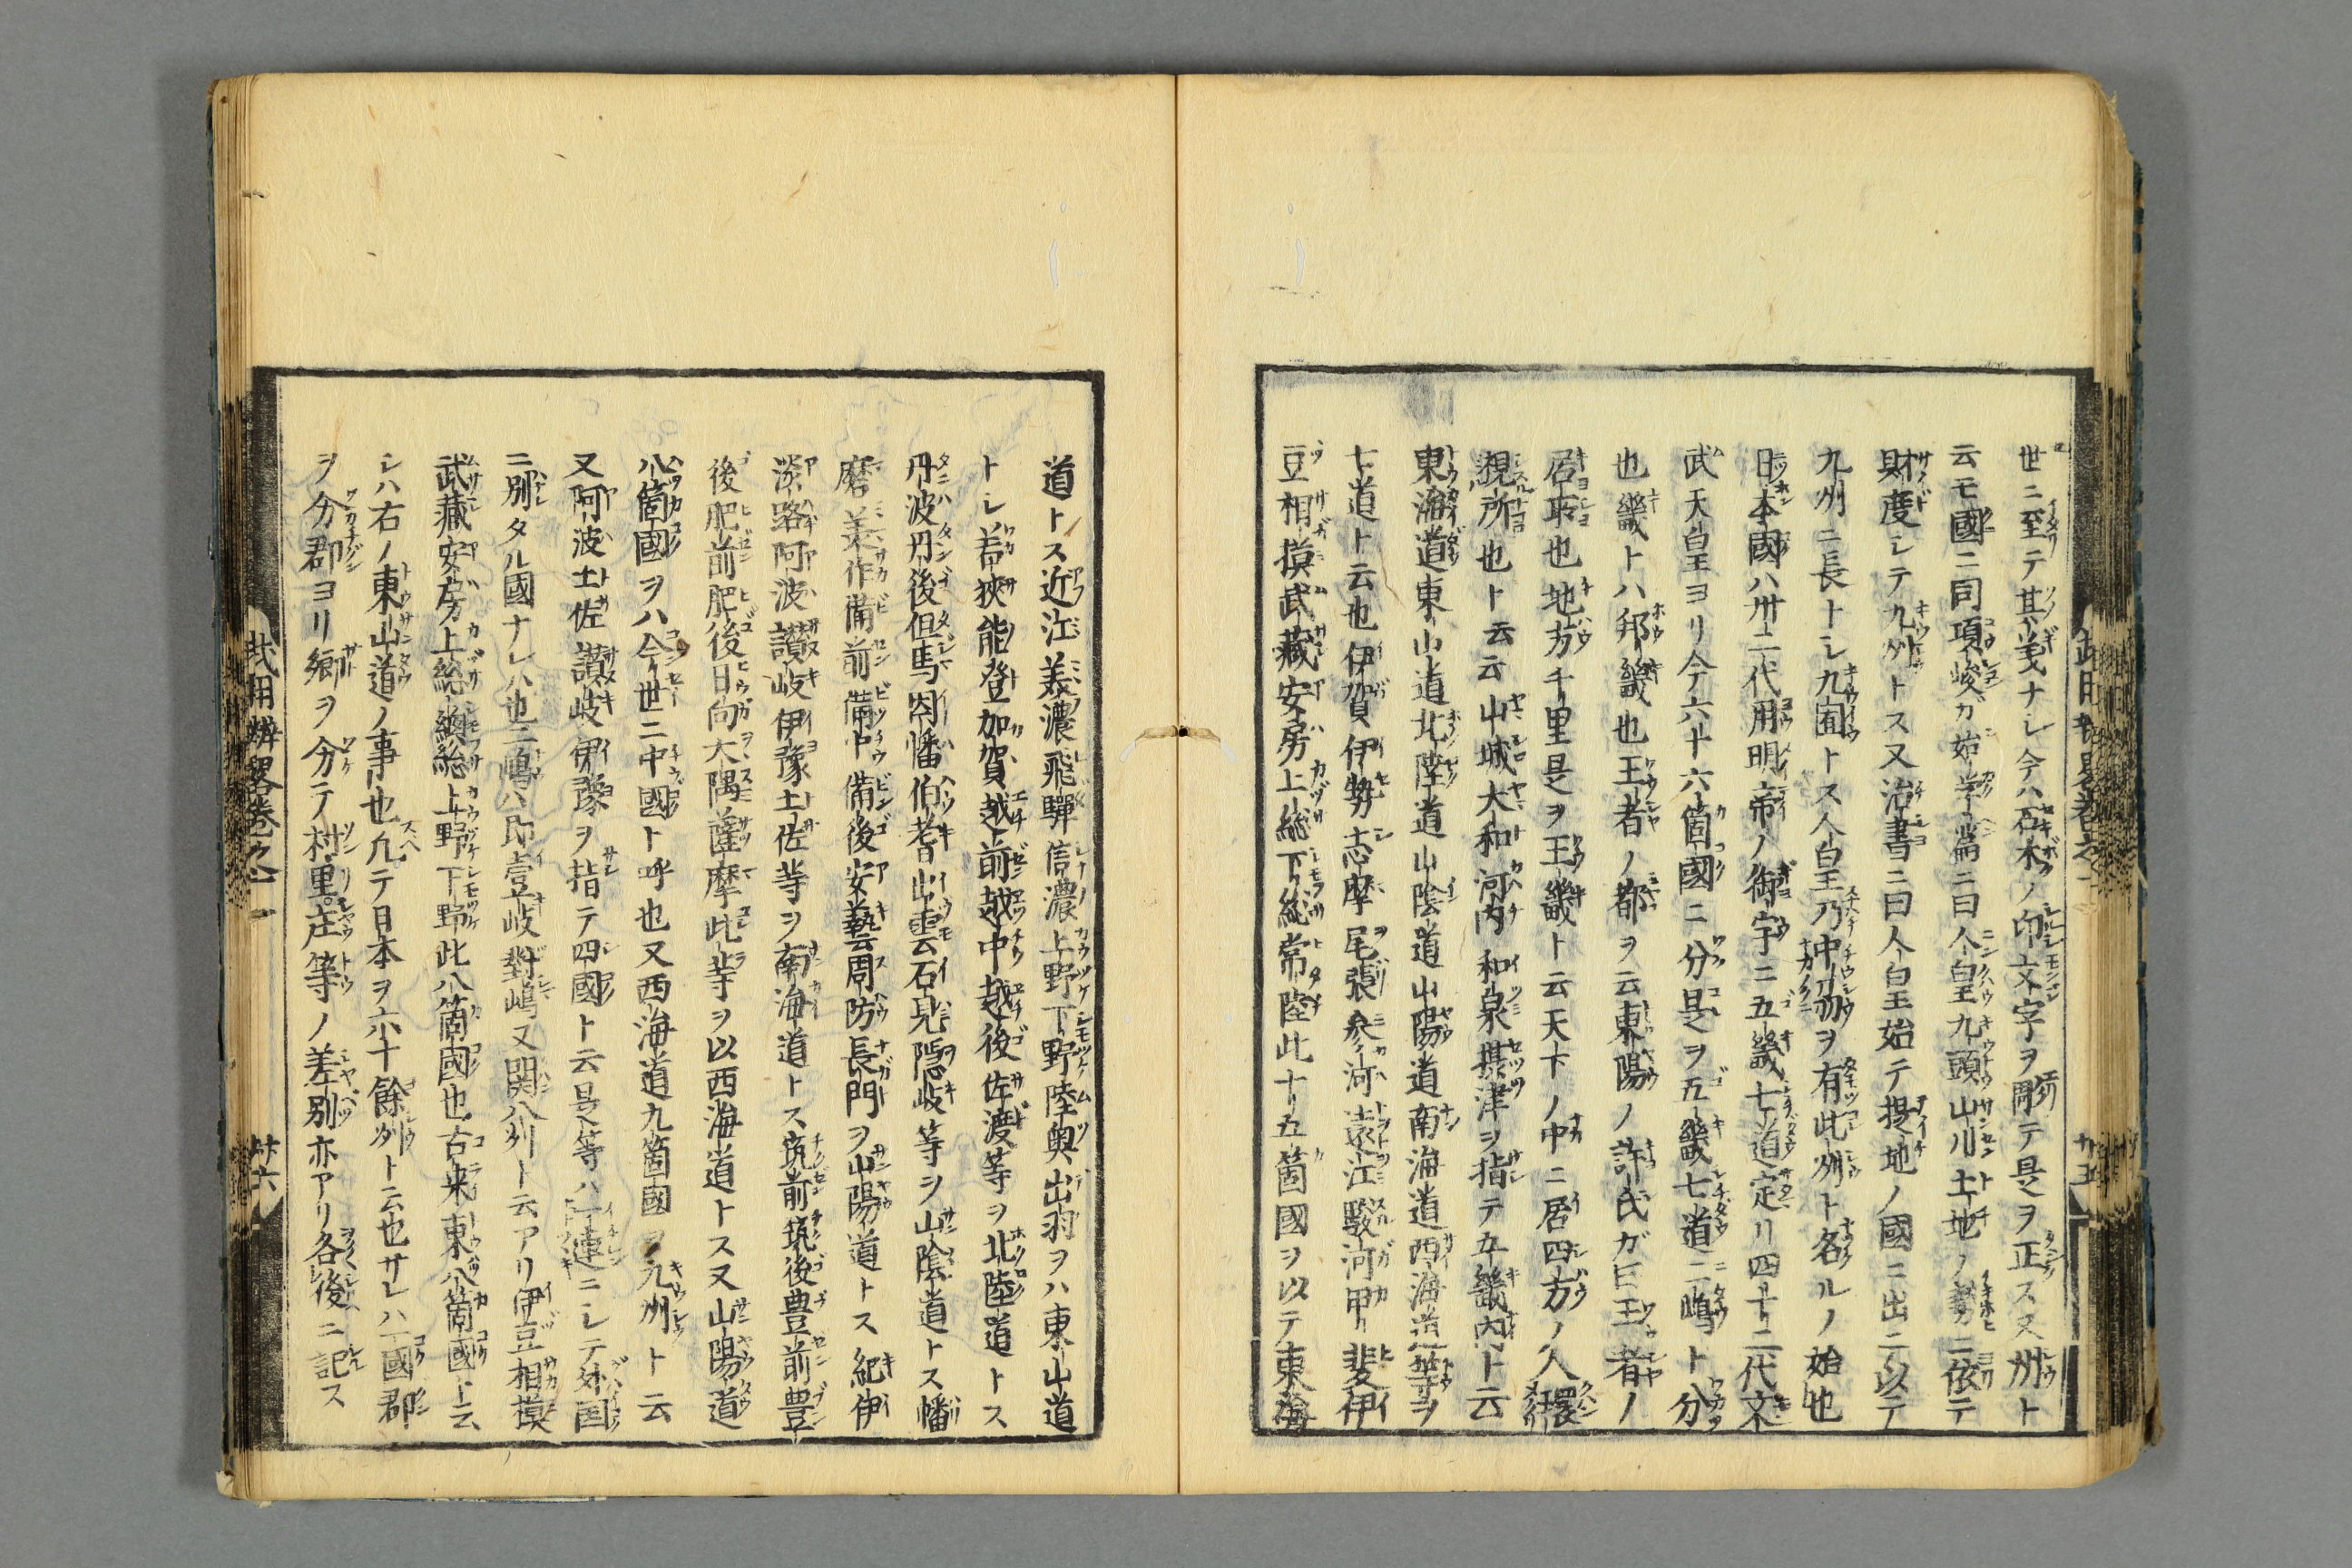 世ニ至テ其義ナシ今ハ石木ノ印文字ヲ彫テ是ヲ正ス又州ト
云モ國ニ同項峻ガ始学篇ニ曰人皇九頭山川土地ノ勢ニ依テ
財度シテ九州トス又治書ニ曰人皇始テ提地ノ國ニ出ニ以テ
九州ニ長トシ九囿トス人皇乃中州ヲ有此州ト名ルノ始也
日本國ハ卅二代用明帝ノ御宇ニ五畿七道定リ四十二代文
武天皇ヨリ今六十六箇國ニ分是ヲ五畿七道二嶋ト分
也畿トハ邦畿也王者ノ都ヲ云東陽ノ許氏ガ曰王者ノ
居所也地方千里是ヲ王畿ト云天下ノ中ニ居四方ノ人環
視所也ト云云山城大和河内和泉摂津ヲ指テ五畿内ト云
東海道東山道北陸道山陰道山陽道南海道西海道等ヲ
七道ト云也伊賀伊勢志摩尾張参河遠江駿河甲斐伊
豆相摸武藏安房上総下総常陸此十五箇國ヲ以テ東海
道トス近江美濃飛驒信濃上野下野陸奥出羽ヲハ東山道
トシ若狹能登加賀越前越中越後佐渡等ヲ北陸道トス
丹波丹後但馬因幡伯耆出雲石見隠岐等ヲ山陰道トス幡
磨美作備前備中備後安藝周防長門ヲ山陽道トス紀伊
淡路阿波讃岐伊豫土佐等ヲ南海道トス筑前筑後豊前豊
後肥前肥後日向大隅薩摩此等ヲ以西海道トス又山陽道
八箇國ヲハ今世ニ中國ト呼也又西海道九箇國ヲ九州ト云
又阿波土佐讃岐伊豫ヲ指テ四國ト云是等ハ一連ニシテ外国
ニ別タル國ナレハ也二嶋ハ即壹岐對嶋又関八州ト云アリ伊豆相摸
武藏安房上総下総上野下野此八箇國也古来東八箇國ト云
シハ右ノ東山道ノ事也凡テ日本ヲ六十餘州ト云也サレハ國郡
ヲ分郡ヨリ郷ヲ分テ村里庄等ノ差別亦アリ各後ニ記ス
武用辨畧卷之一 廿六